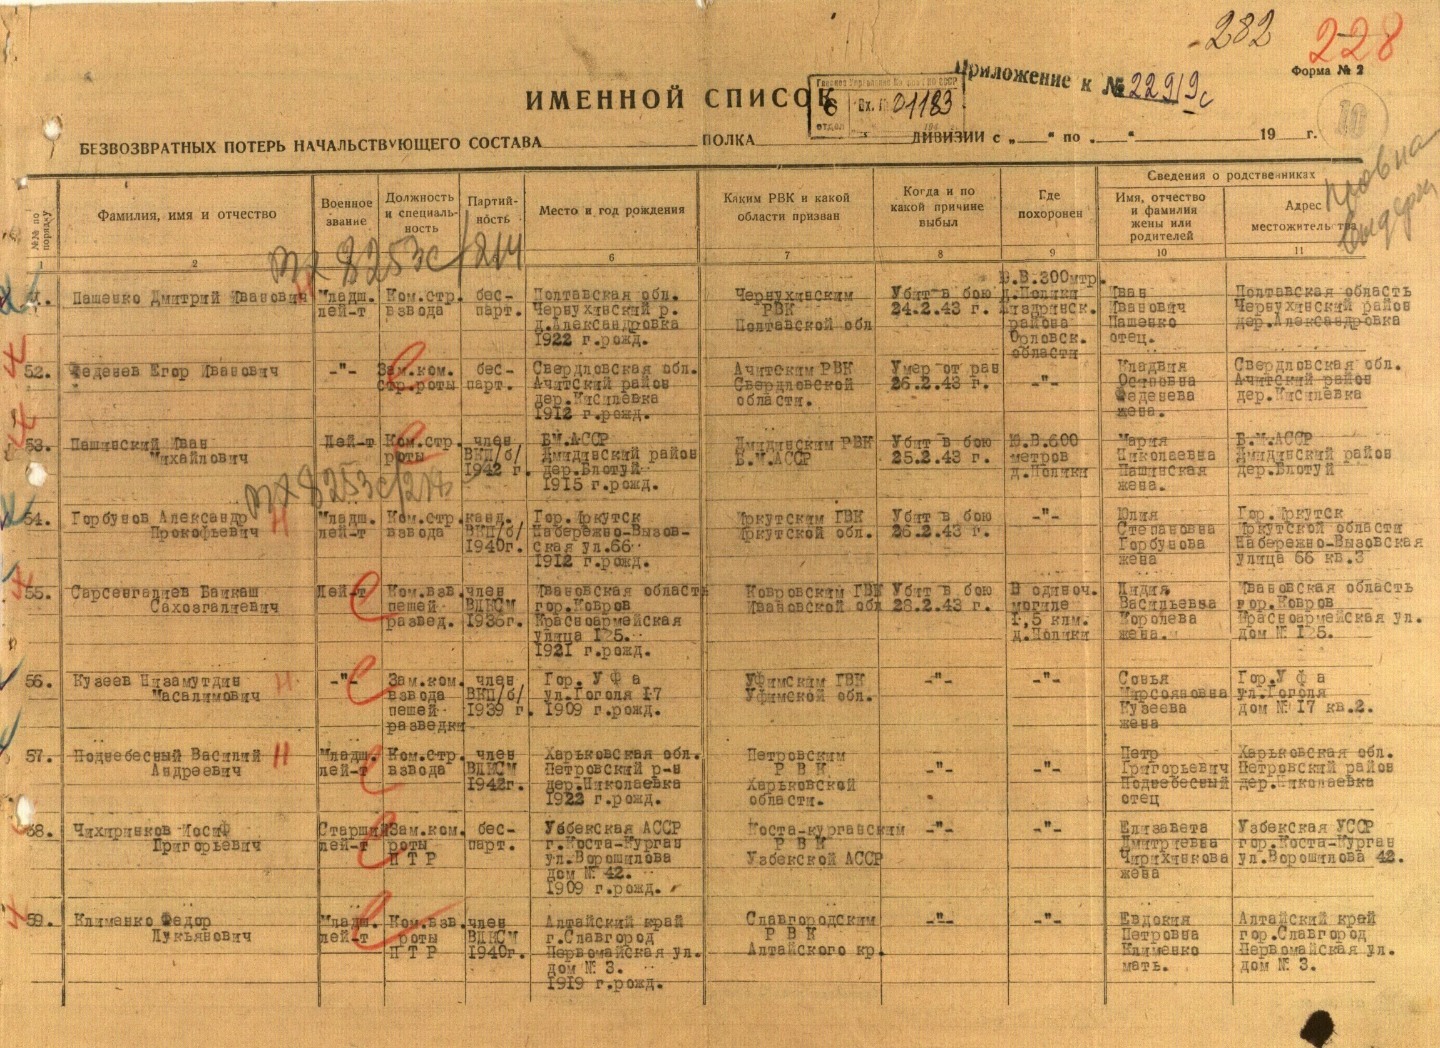 282
228
Форма № 2
Приложение к № 22919с
ИМЕННОЙ СПИСОК
Вх. № 01183
отдел
БЕЗВОЗВРАТНЫХ ПОТЕРЬ НАЧАЛЬСТВУЮЩЕГО СОСТАВА ПОЛКА ДИВИЗИИ с „ “ по „ “ 19 г.
10
№№ по порядку
Фамилия, имя и отчество
Военное звание
Должность и специальность
Партийность
Место и год рождения
Каким РВК и какой области призван
Когда и по какой причине выбыл
Где похоронен
Сведения о родственниках
Имя, отчество и фамилия жены или родителей
Адрес местожительства
2 6 7 8 9 10 11
вх 8253с/214
Ю.В.300мтр.
Пашенко Дмитрий Иванович Младш. Ком.стр. бес- Полтавская обл. Чернухинским Убит в бою д.Полики Иван Полтавская область
лей-т взвода парт. Чернухинский р. РВК 24.2.43 г. Жиздринск. Иванович Чернухинский район
д.Александровка Полтавской обл района Пашенко дер.Александровка
1922 г.рожд. Орловск. отец.
области
52. Феденев Егор Иванович -"- Зам.ком. бес- Свердловская обл. Ачитским РВК Умер от ран Клавдия Свердловская обл.
стр.роты парт. Ачитский район Свердловской 26.2.43 г. -"- Осиповна Ачитский район
дер.Кисилевка области. Феденева дер.Кисилевка
1912 г.рожд. жена.
53. Пашинский Иван Лей-т Ком.стр. член Б.М.АССР Дмидинским РВК Убит в бою Ю.В.600 Мария Б.М.АССР
Михайлович роты ВКП/б/ Дмидинский район Б.М.АССР 25.2.43 г. метров Николаевна Дмидинский район
1942 г. дер.Блотуй д.Полики Пашинская дер.Блотуй
1915 г.рожд. жена.
вх 8253с/218
54. Горбунов Александр Н Младш. Ком.стр. канд. Гор.Иркутск Иркутским ГВК Убит в бою -"- Юлия Гор.Иркутск
Прокофьевич лей-т взвода ВКП/б/ Набережно-Вызов- Иркутской обл. 26.2.43 г. Степановна Иркутской области
1940г. ская ул.66 Горбунова Набережно-Вызовская
1912 г.рожд. жена улица 66 кв.3
55. Сарсенгалиев Баикаш Лей-т Ком.взв. член Ивановская область Ковровским ГВК Убит в бою В одиноч. Лидия Ивановская область
Сахозгалиевич пешей ВЛКСМ гор.Ковров Ивановской обл 28.2.43 г. могиле Васильевна гор.Ковров
развед. 1936г. Красноармейская 1,5 клм. Королева Красноармейская ул.
улица 125. д.Полики жена. дом № 125.
1921 г.рожд.
56. Кузеев Низамутдин Н -"- Зам.ком. член Гор. У ф а Уфимским ГВК -"- -"- Совья Гор.У ф а
Масалимович взвода ВКП/б/ ул.Гоголя 17 Уфимской обл. Мирсояновна ул.Гоголя
пешей 1939 г. 1909 г.рожд. Кузеева дом № 17 кв.2.
разведки жена
57. Поднебесный Василий Н Младш. Ком.стр. член Харьковская обл. Петровским Петр Харьковская обл.
Андреевич лей-т взвода ВЛКСМ Петровский р-н Р В К -"- -"- Григорьевич Петровский район
1942г. дер.Николаевка Харьковской Поднебесный дер.Николаевка
1922 г.рожд. области. отец
58. Чихиринков Иосиф Старший Зам.ком. бес- Узбекская АССР Коста-курганским -"- -"- Елизавета Узбекская УССР
Григорьевич лей-т роты парт. г.Коста-Курган Р В К Дмитриевна гор.Коста-Курган
П Т Р ул.Ворошилова Узбекской АССР Чирихинкова ул.Ворошилова 42.
дом № 42. жена
1909 г.рожд.
59. Клименко Федор Младш. Ком.взв. член Алтайский край Славгородским -"- -"- Евдокия Алтайский край
Лукьянович лей-т роты ВЛКСМ г.Славгород Р В К Петровна гор.Славгород
П Т Р 1940г. Первомайская ул. Алтайского кр. Клименко Первомайская ул.
дом № 3. мать. дом № 3.
1919 г.рожд.